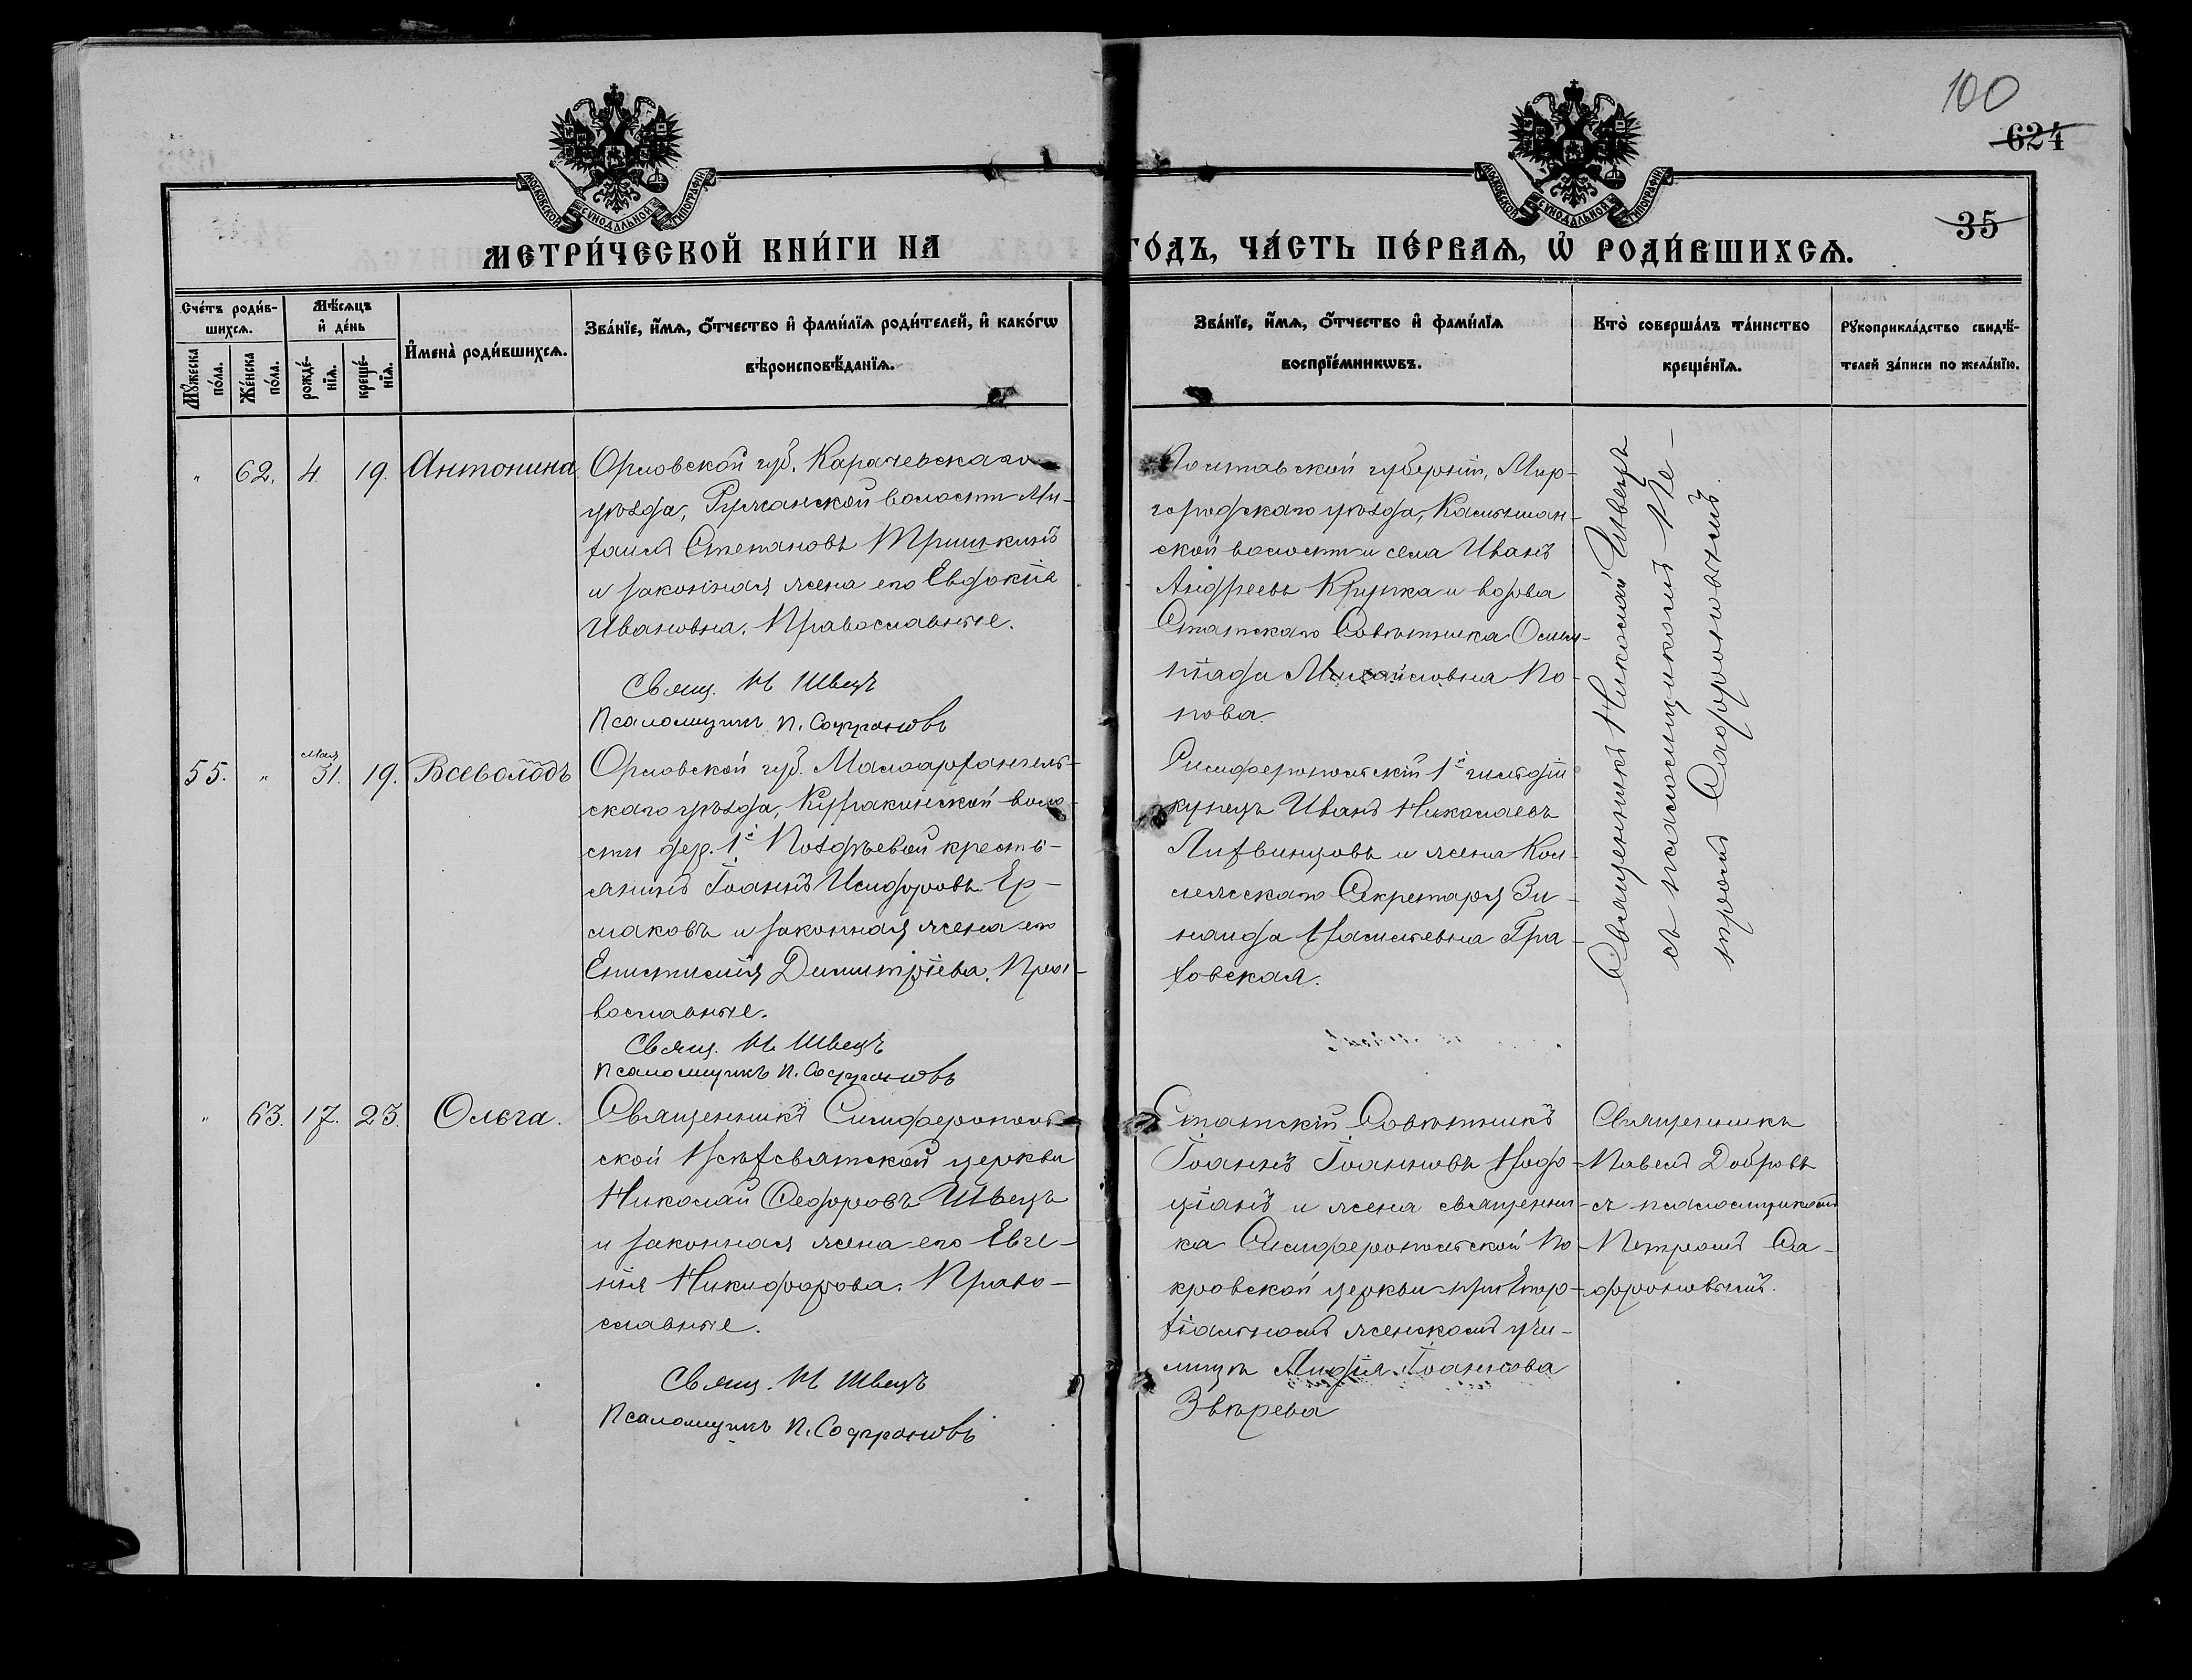 100
624
35
МОСКОВСКОЙ СѴНОДАЛЬНОЙ ТИПОГРАФІИ
МОСКОВСКОЙ СѴНОДАЛЬНОЙ ТИПОГРАФІИ
МЕТРИ́ЧЕСКОЙ КНИ́ГИ НА
ГО́ДЪ, ЧА́СТЬ ПЕ́РВАѦ, Ѽ РОДИ́ВШИХСѦ.
Сче́тъ роди́в-
шихсѧ.
Мѣ́сѧцъ
и҆ де́нь
Мꙋ́жеска
по́ла.
Же́нска
по́ла.
рожде́-
нїѧ.
креще́-
нїѧ.
И҆мена̀ роди́вшихсѧ.
Зва́нїе, и҆́мѧ, ѻ҆́тчество и҆ фами́лїѧ роди́телей, и҆ како́гѡ
вѣроисповѣ́данїѧ.
Зва́нїе, и҆́мѧ, ѻ҆́тчество и҆ фами́лїѧ
воспрїе́мникѡвъ.
Кто̀ соверша́лъ та́инство
креще́нїѧ.
Рꙋкоприкла́дство свидѣ́-
телей за́писи по жела́нїю.
" 62. 4. 19. Антонина
Орловской губ. Карачевскаго
уѣзда, Ружанской волости Ми-
хаилъ Степановъ Тришкинъ
и законная жена его Евдокія
Ивановна. Православные.
Свящ. Н Швецъ
Псаломщикъ П. Софроновъ
Полтавской губерніи, Мир-
городскаго уѣзда,
ской волости и села Иванъ
Андреевъ Крупка и вдова
Статскаго Совѣтника Олим-
піада Михайловна По-
пова.
Священникъ Николай Швецъ
съ псаломщикомъ Пе-
тромъ Софроновымъ.
55. " мая 31. 19. Всеволодъ
Орловской губ. Малоархангель-
скаго уѣзда, Куракинской воло-
сти дер. 1й Поздѣевой кресть-
янинъ Іоаннъ Исидоровъ Ер-
маковъ и законная жена его
Епистимія Димитріева. Пра-
вославные.
Свящ. Н Швецъ
Псаломщикъ П. Софроновъ
Симферопольскій 1й гильдіи
купецъ Иванъ Николаевъ
Литвинцовъ и жена Кол-
лежскаго Секретаря Зи-
наида Васильевна Гра-
ховская.
" 63. 17. 23. Ольга.
Священникъ Симферополь-
ской Всѣхсвятской церкви
Николай Ѳедоровъ Швецъ
и законная жена его Евге-
нія Никифорова. Право-
славные.
Свящ. Н Швецъ
Псаломщикъ П. Софроновъ
Статскій Совѣтникъ
Іоаннъ Іоанновъ
и жена священни-
ка Симферопольской По-
кровской церкви при Епар-
хіальномъ женскомъ учи-
лищѣ Лидія Іоаннова
Звѣрева
Священникъ
Павелъ Добровъ
съ псаломщикомъ
Петромъ Со-
фроновымъ.